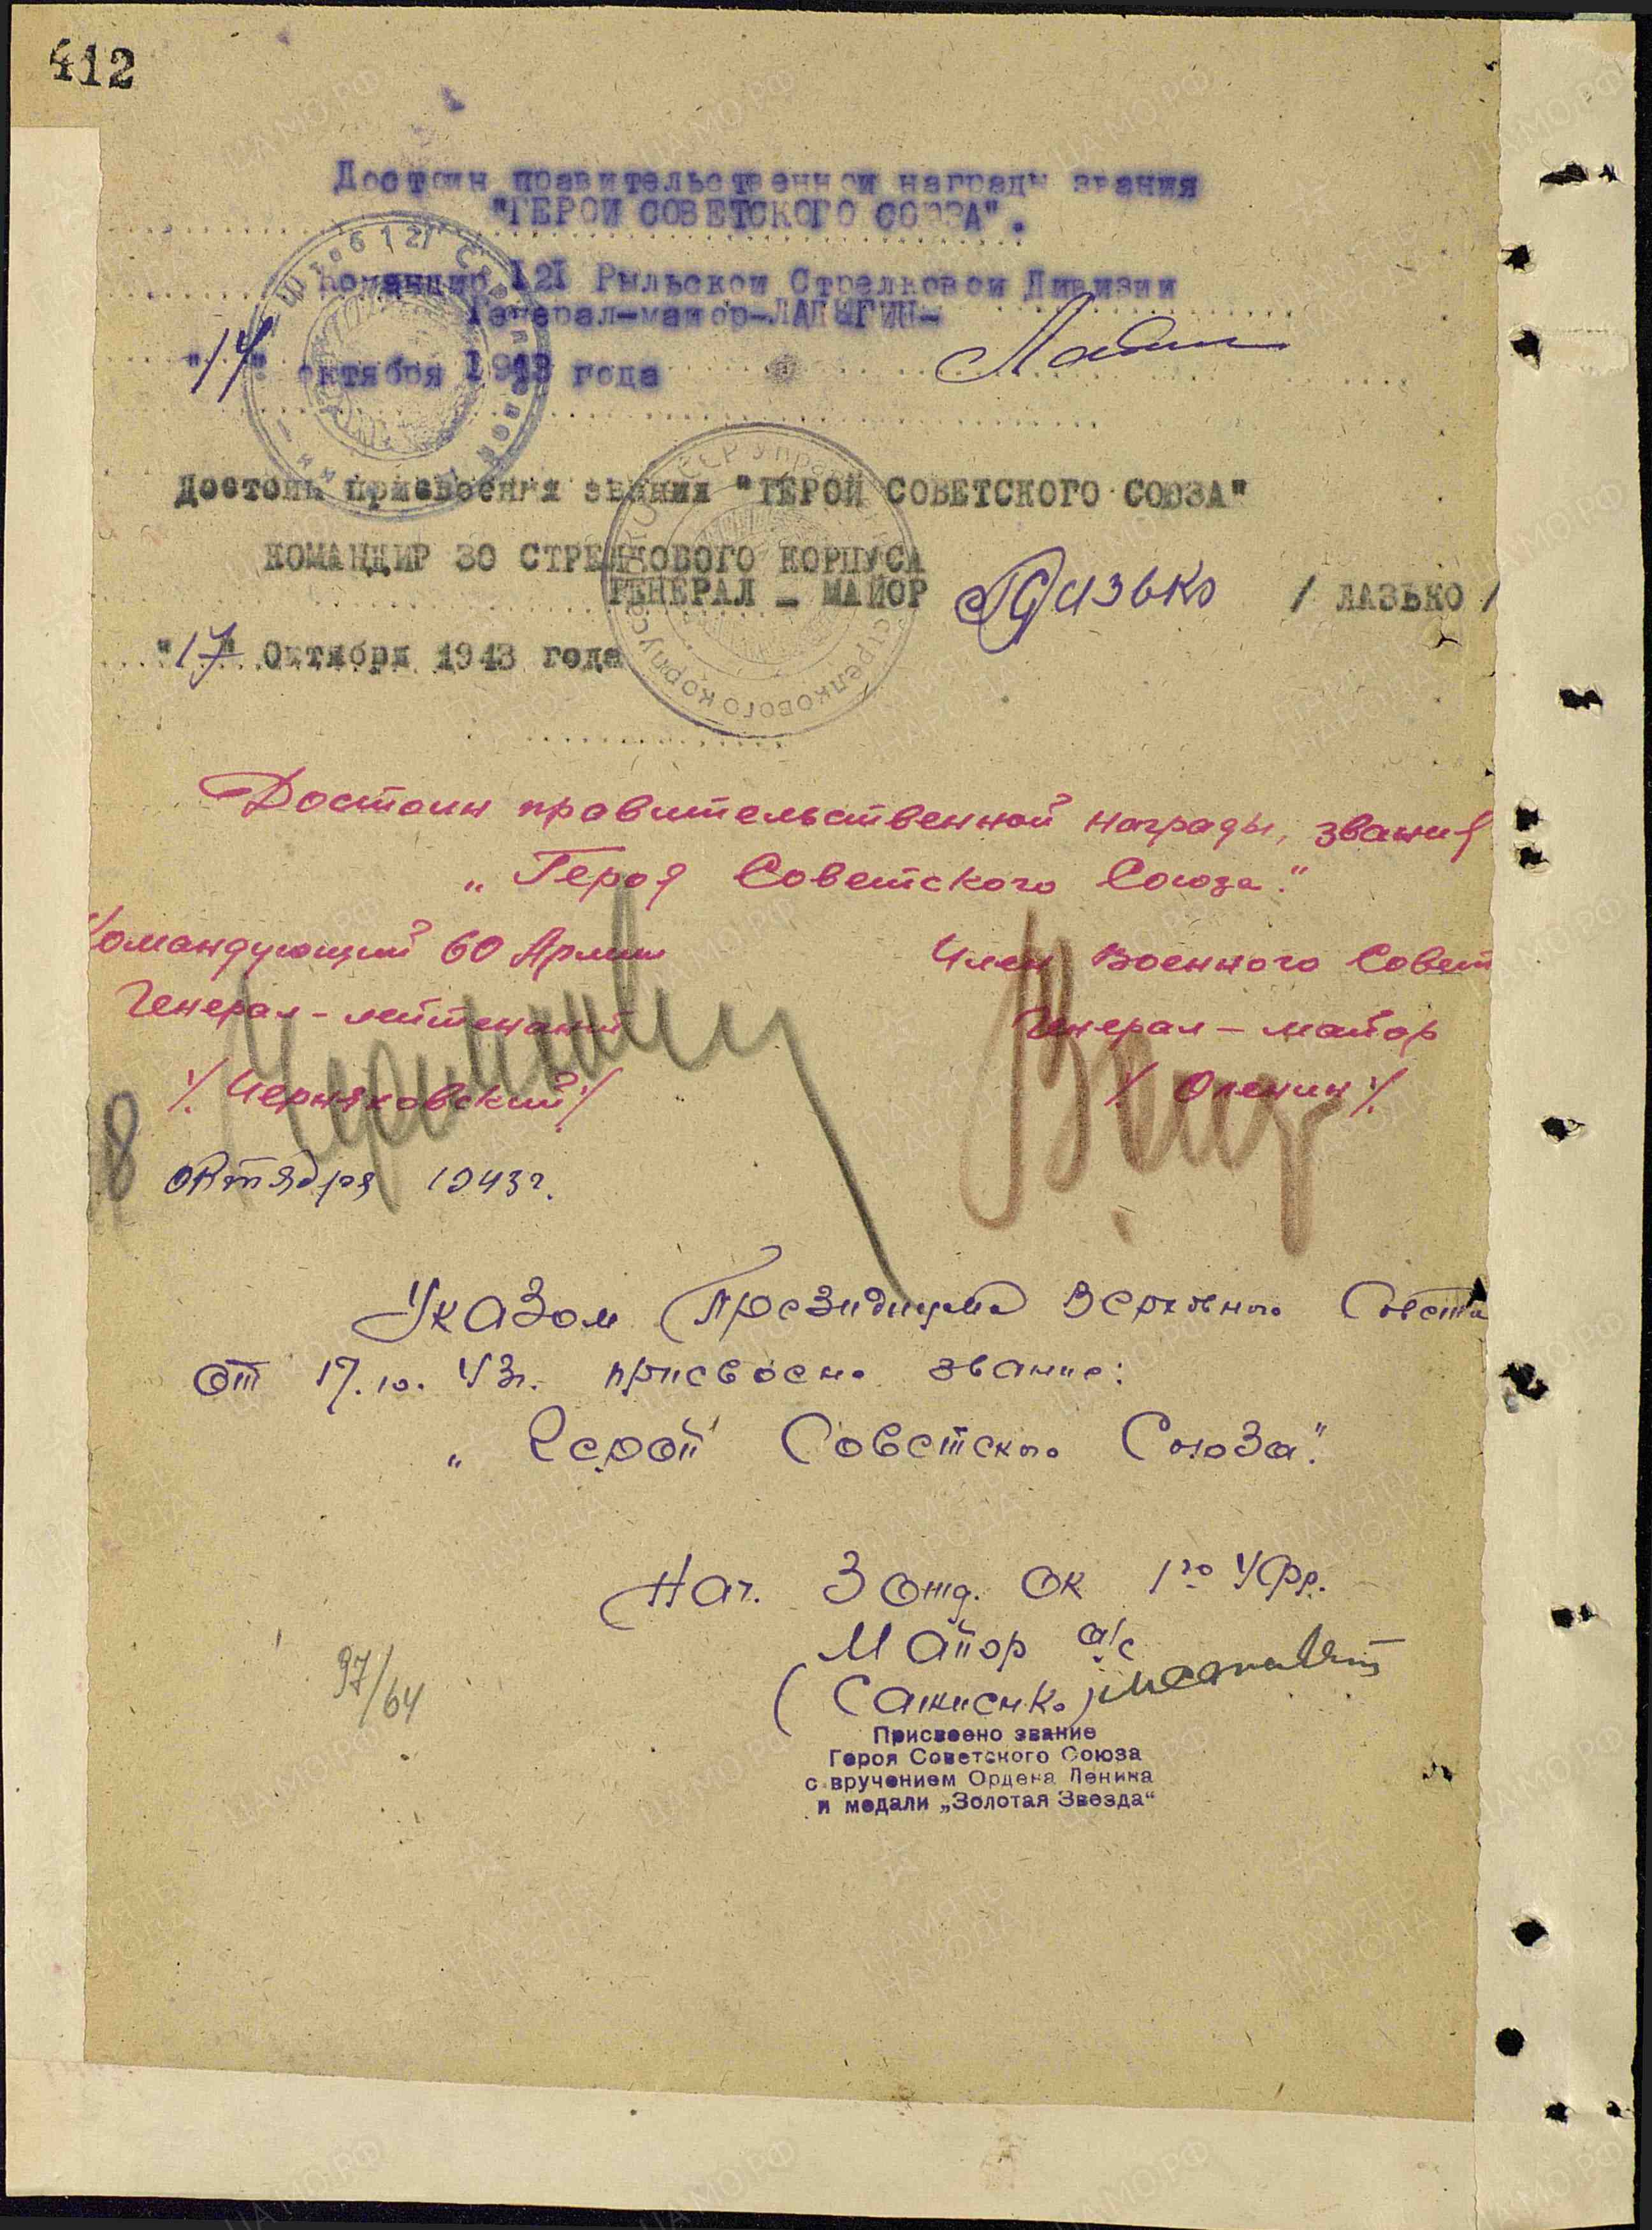 412
Достоин правительственной награды звания
"ГЕРОЙ СОВЕТСКОГО СОЮЗА".
Командир 121 Рыльской Стрелковой Дивизии
Генерал-майор-ЛАДЫГИН-
"14" октября 1943 года
Достоин присвоения звания "ГЕРОЙ СОВЕТСКОГО СОЮЗА"
КОМАНДИР 30 СТРЕЛКОВОГО КОРПУСА
ГЕНЕРАЛ – МАЙОР Лазько / ЛАЗЬКО /
"17" Октября 1943 года
Достоин правительственной награды, звания
„Героя Советского Союза."
Командующий 60 Армии
Генерал-лейтенант
/.Черняховский/.
Член Военного Совет
Генерал – майор
/. Оленин/.
8 октября 1943г.
Указом Президиума Верховного Совета
от 17.10.43г. присвоено звание:
„Герой Советского Союза".
Нач. 3 отд. ОК 1го Уфр.
Майор а/с
97/64
Присвоено звание
Героя Советского Союза
с вручением Ордена Ленина
и медали „Золотая Звезда"